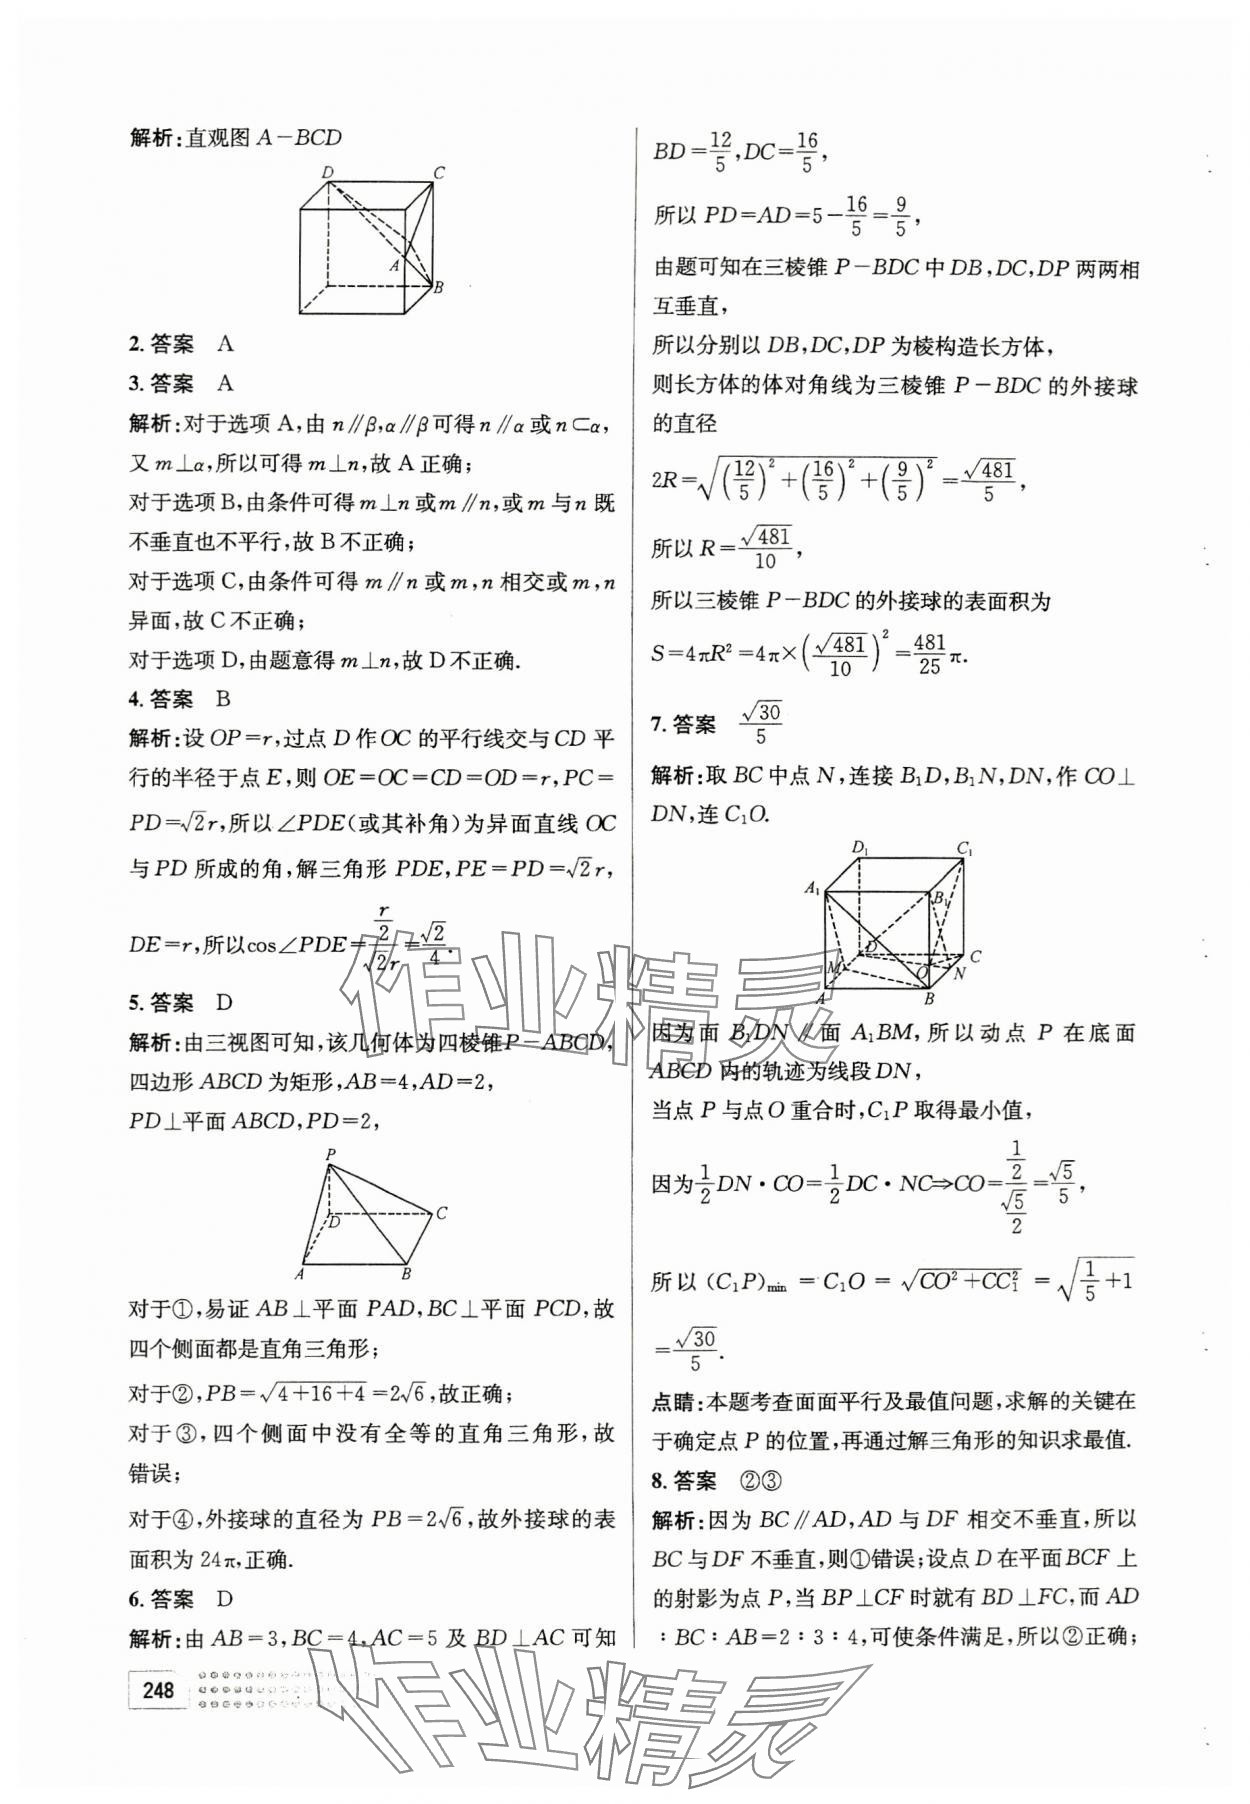 解析:直观图 A-BCD
D C
A
B
2. 答案 A
3. 答案 A
解析:对于选项 A,由 n∥β,α∥β可得 n∥α 或 n⊂α,
又 m⊥α,所以可得 m⊥n,故 A 正确;
对于选项 B,由条件可得 m⊥n 或 m∥n,或 m 与 n 既
不垂直也不平行,故 B 不正确;
对于选项 C,由条件可得 m∥n 或 m,n 相交或 m,n
异面,故 C 不正确;
对于选项 D,由题意得 m⊥n,故 D 不正确.
4. 答案 B
解析:设 OP=r,过点 D 作 OC 的平行线交与 CD 平
行的半径于点 E,则 OE=OC=CD=OD=r,PC=
PD=√2r,所以∠PDE(或其补角)为异面直线 OC
与 PD 所成的角,解三角形 PDE,PE=PD=√2r,
DE=r,所以cos∠PDE=(r/2)/(√2r)=√2/4.
5. 答案 D
解析:由三视图可知,该几何体为四棱锥P-ABCD,
四边形 ABCD 为矩形,AB=4,AD=2,
PD⊥平面 ABCD,PD=2,
P
D C
A B
对于①,易证 AB⊥平面 PAD,BC⊥平面 PCD,故
四个侧面都是直角三角形;
对于②,PB=√(4+16+4)=2√6,故正确;
对于③,四个侧面中没有全等的直角三角形,故
错误;
对于④,外接球的直径为 PB=2√6,故外接球的表
面积为 24π,正确.
6. 答案 D
解析:由 AB=3,BC=4,AC=5 及 BD⊥AC 可知
248
BD=12/5,DC=16/5,
所以 PD=AD=5-16/5=9/5,
由题可知在三棱锥 P-BDC 中 DB,DC,DP 两两相
互垂直,
所以分别以 DB,DC,DP 为棱构造长方体,
则长方体的体对角线为三棱锥 P-BDC 的外接球
的直径
2R=√((12/5)²+(16/5)²+(9/5)²)=√481/5,
所以 R=√481/10,
所以三棱锥 P-BDC 的外接球的表面积为
S=4πR²=4π×(√481/10)²=481/25 π.
7. 答案 √30/5
解析:取 BC 中点 N,连接 B₁D,B₁N,DN,作 CO⊥
DN,连 C₁O.
D₁ C₁
A₁ B₁
D C
M O N
A B
因为面 B₁DN∥面 A₁BM,所以动点 P 在底面
ABCD 内的轨迹为线段 DN,
当点 P 与点 O 重合时,C₁P 取得最小值,
因为1/2 DN·CO=1/2 DC·NC⇒CO=(1/2)/(√5/2)=√5/5,
所以 (C₁P)min=C₁O=√(CO²+CC₁²)=√(1/5+1)
=√30/5.
点睛:本题考查面面平行及最值问题,求解的关键在
于确定点 P 的位置,再通过解三角形的知识求最值.
8. 答案 ②③
解析:因为 BC∥AD,AD 与 DF 相交不垂直,所以
BC 与 DF 不垂直,则①错误;设点 D 在平面 BCF 上
的射影为点 P,当 BP⊥CF 时就有 BD⊥FC,而 AD
:BC:AB=2:3:4,可使条件满足,所以②正确;
作业精灵
作业精灵